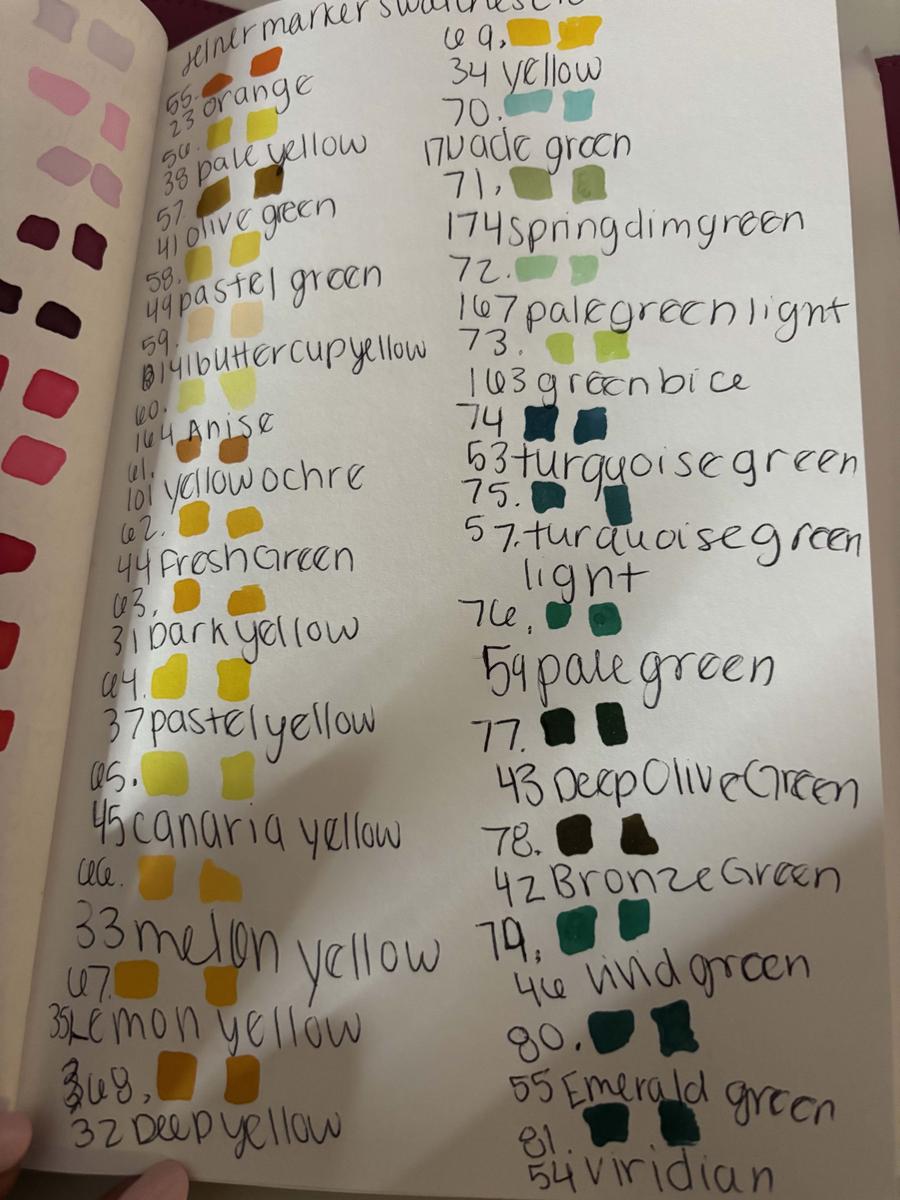 marker swatches
55.
23 orange
56.
38 pale yellow
57.
41 olive green
58.
49 pastel green
59.
141 buttercup yellow
60.
164 Anise
61.
101 yellow ochre
62.
44 Fresh Green
63.
31 Dark yellow
64.
37 pastel yellow
65.
45 canaria yellow
66.
33 melon yellow
67.
35 Lemon yellow
368.
32 Deep yellow
69.
34 yellow
70.
green
71.
174 spring dim green
72.
167 pale green light
73.
163 green bice
74
53 turquoise green
75.
57. turquoise green
light
76.
59 pale green
77.
43 Deep Olive Green
78.
42 Bronze Green
79.
46 vivid green
80.
55 Emerald green
81.
54 viridian